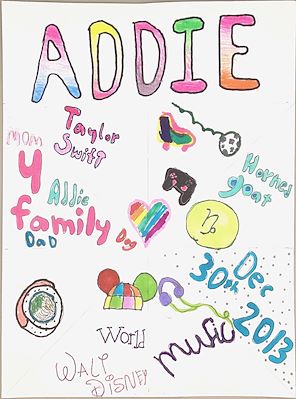 ADDIE
Taylor
Swift
Mom
4
Addie
family
Dad
Dog
Horned
goat
Dec
30th
2013
World
music
WALT
DISNEY